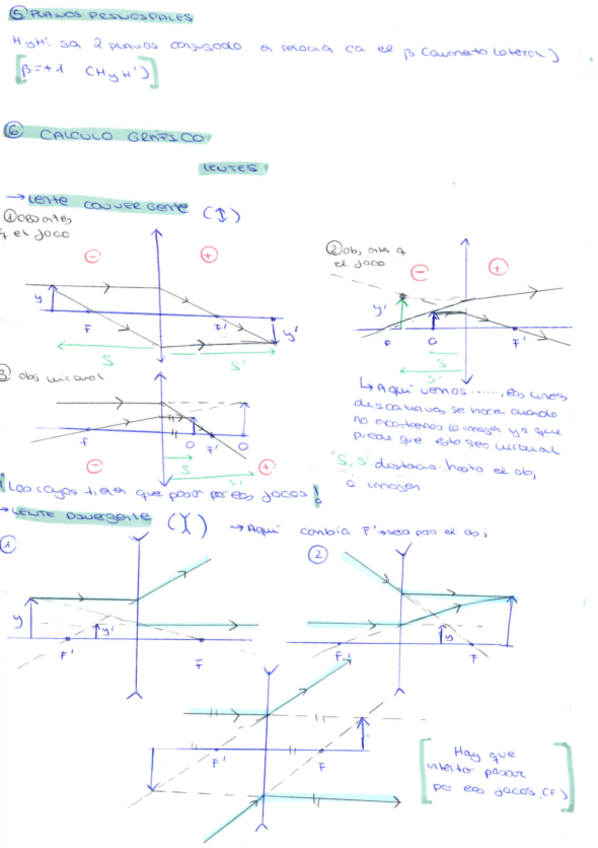 ⑤ PLANOS PRINCIPALES
H y H': son 2 planos conjugado en relación con el β (aumento lateral)
[β=+1 (H y H')]
⑥ CALCULO GRÁFICO
LENTES
→ Lente CONVERGENTE (↕)
① obj antes
q el foco
② obj antes q
el foco
- +
- +
y y'
F F'
S S'
y'
F O F'
S
S'
③ obj virtual
F O F' O
S
S'
- +
↳ Aquí vemos ......, es
discontinuas se hacen cuando
no encontremos la imagen ya que
puede que esto sea virtual
S, S': distancia hasta el obj
o imagen
¡Los rayos tienen que pasar por los focos!
→ LENTE Divergente (
) → Aquí cambia F'→ pasa por el obj
①
②
y y'
F' F
F' y F
F' F
Hay que
intentar pasar
por los focos (F)